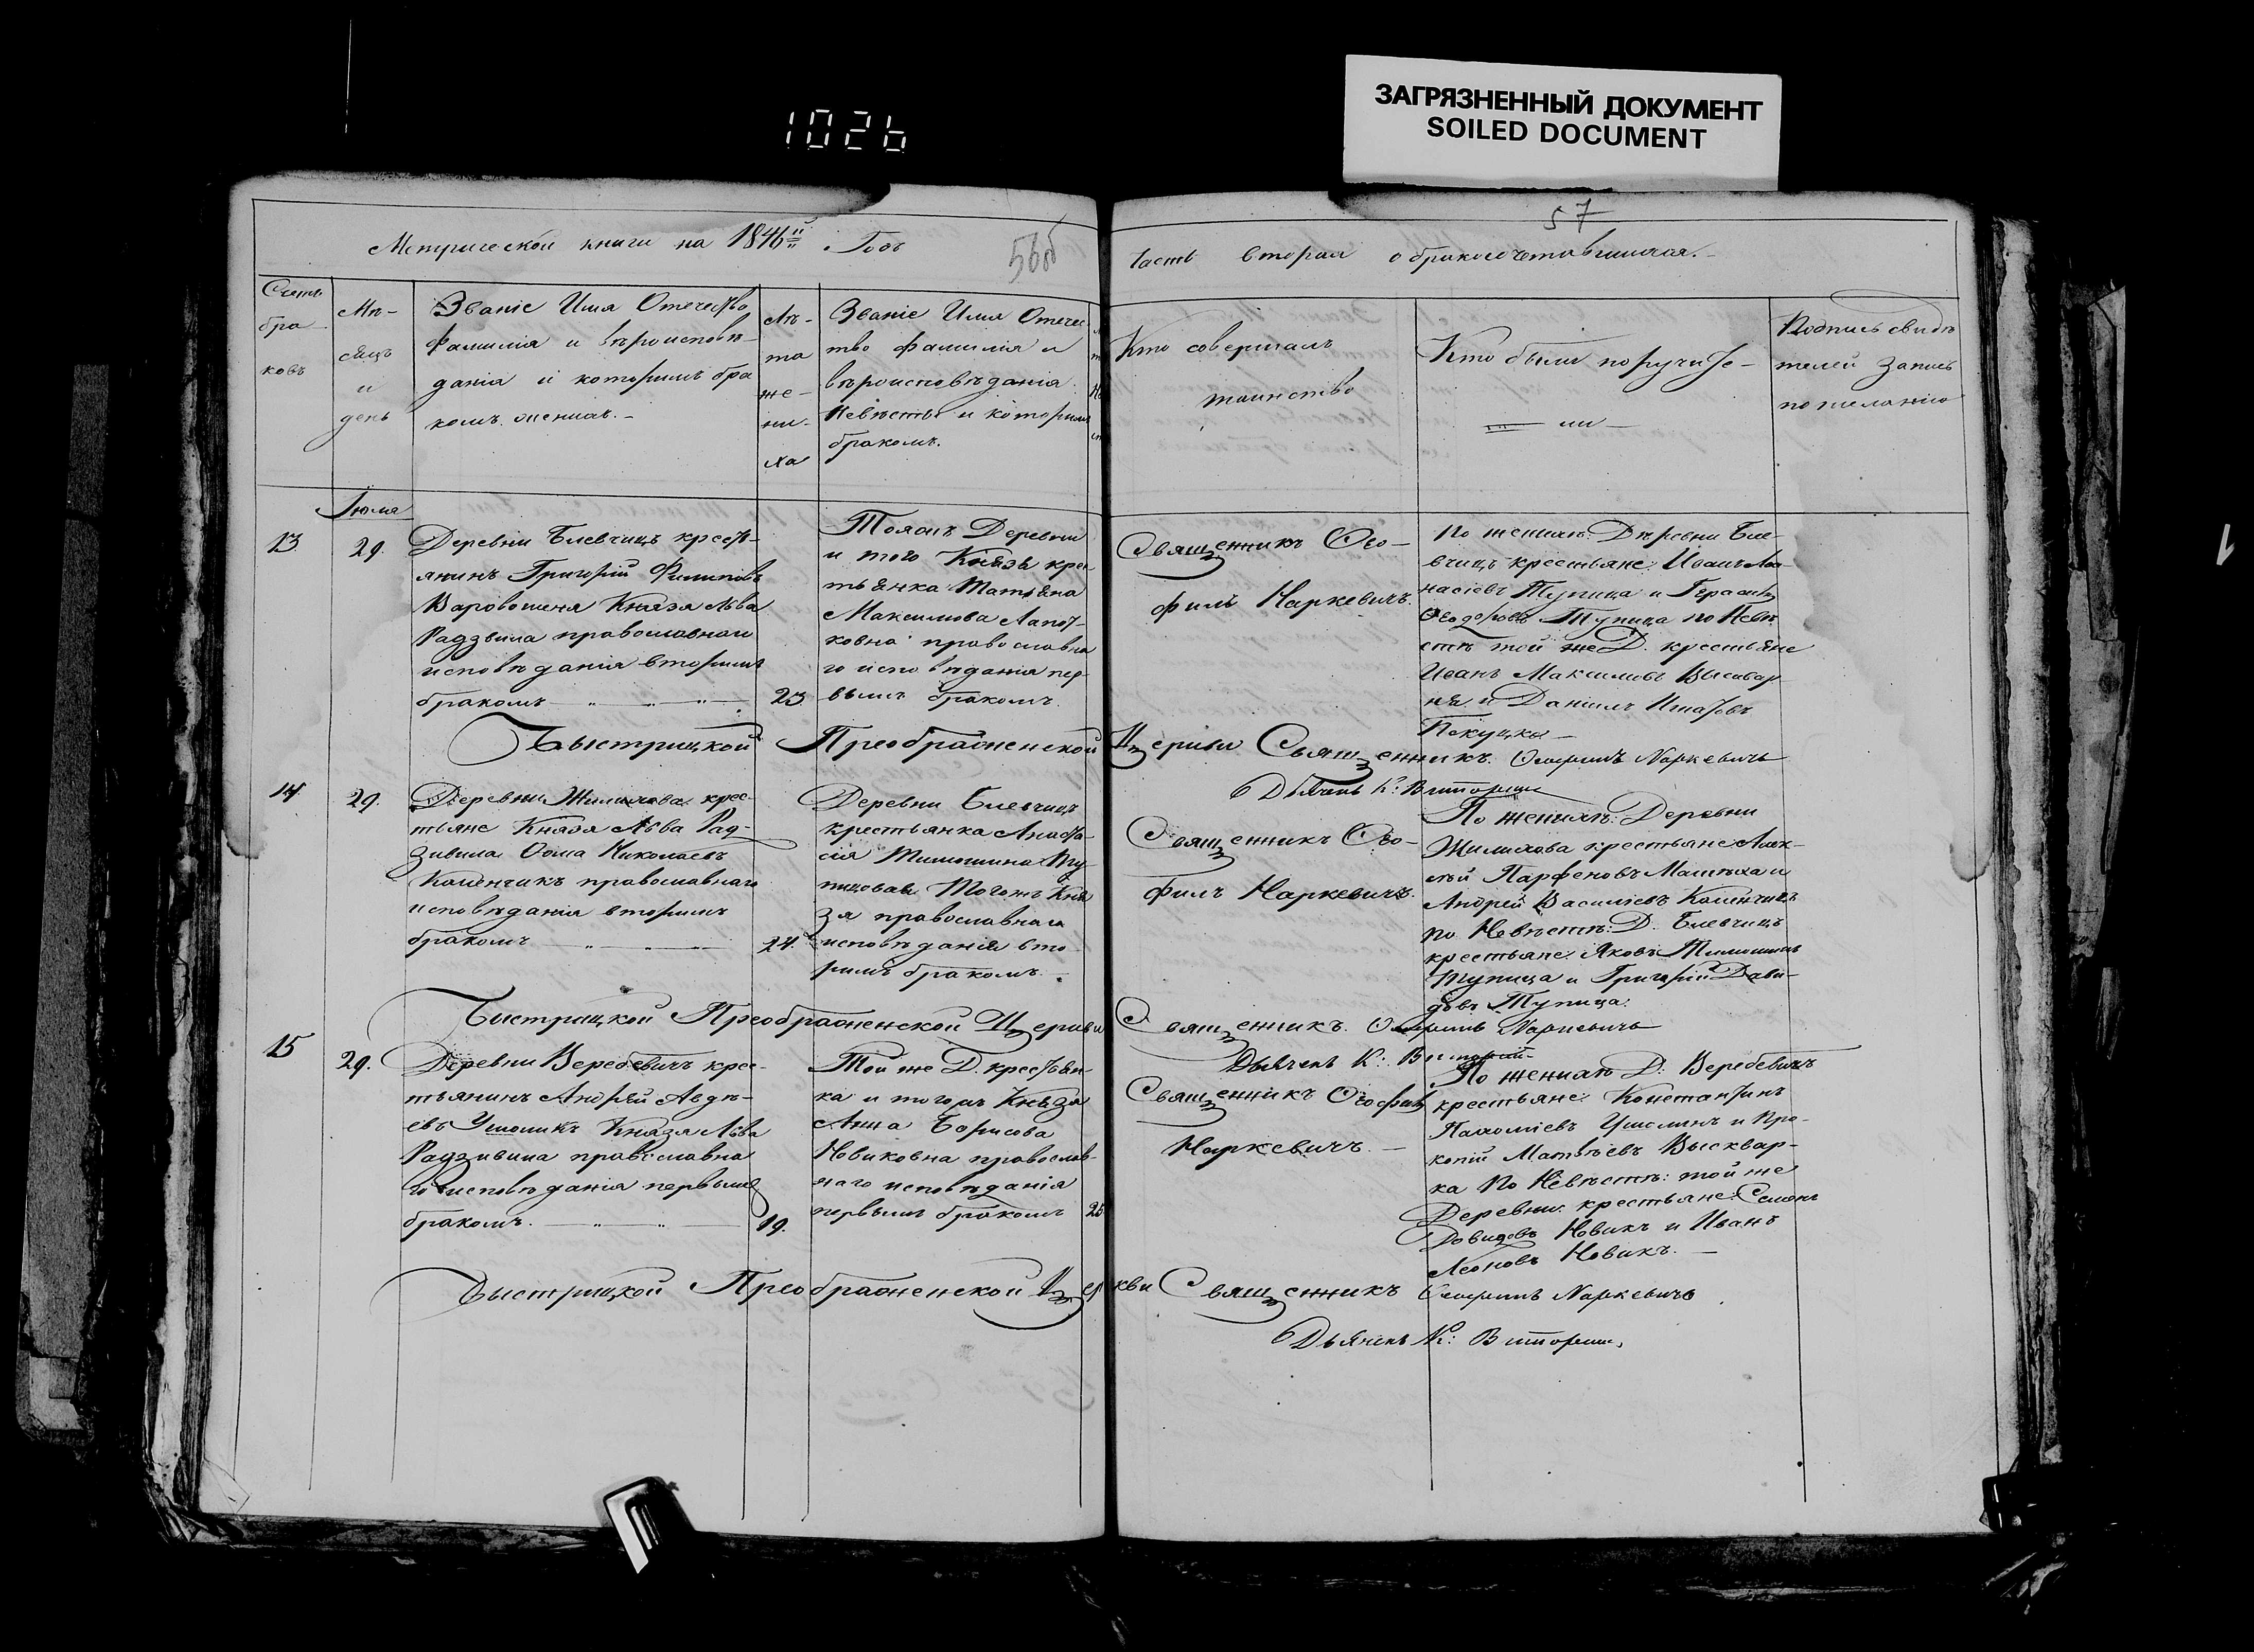 ЗАГРЯЗНЕННЫЙ ДОКУМЕНТ
SOILED DOCUMENT
1026
Метрической книги на 1846й Годъ
56об
57
Часть вторая о бракосочетавшихся.
Счетъ
бра
ковъ
Мѣ-
сяцъ
и
день
Званіе Имя Отечество
фамилія и вѣроисповѣ-
данія и которымъ бра
комъ женихъ.
Лѣ-
та
же-
ни-
ха
Званіе Имя Отечес-
тво фамилія и
вѣроисповѣданія
Невѣсты и которымъ
бракомъ.
Кто совершалъ
таинство
Кто были поручите-
ли
Подпись свидѣ
телей запись
по желанію
Іюля
13
29.
Деревни Блевчицъ кресть-
янинъ Григорій Филиповъ
Князя Льва
Радзвила православнаго
исповѣданія вторымъ
бракомъ
23.
Тояжъ Деревни
и того Князя крес-
тьянка Татьяна
Максимова Лапот-
ковна православна
го исповѣданія пер-
вымъ бракомъ.
Священникъ Ѳео-
филъ Наркевичъ.
По жениху: Деревни Бле-
вчицъ крестьяне: Иванъ Аѳа-
насіевъ Тупица и Герасимъ
Ѳеодоровъ Тупица по Невѣ
стѣ той же Д. крестьяне
Иванъ Максимовъ
и Даніилъ
Быстрицкой Преображенской Церкви Священникъ Ѳеофилъ Наркевичъ
Дьячекъ К:
14
29.
Деревни Жилихова крес-
тьяне Князя Льва Рад-
зивила Ѳома Николаевъ
Каленчикъ православнаго
исповѣданія вторымъ
бракомъ
24.
Деревни Блевчицъ
крестьянка Анаста-
сія Тимошина Ту-
пицова Тогожъ Кня
зя православнаго
исповѣданія вто
рымъ бракомъ.
Священникъ Ѳео-
филъ Наркевичъ.
По жениху: Деревни
Жилихова крестьяне Алек-
сѣй Парфеновъ и
Андрей Василіевъ Каленчикъ
по Невѣстѣ: Д. Блевчицъ
крестьяне Яковъ Тимошинъ
Тупица и Григорій Дави-
довъ Тупица.
Быстрицкой Преображенской Церкви Священникъ. Ѳеофилъ Наркевичъ
Дьячекъ К:
15
29.
Деревни Веребевичъ крес-
тьянинъ Андрей Авдѣ-
евъ Князя Льва
Радзивила православна
го исповѣданія первымъ
бракомъ.
19.
Той же Д. крестьян-
ка и тогожъ Князя
Анна Борисова
Новиковна православ-
наго исповѣданія
первымъ бракомъ
20
Священникъ Ѳеофилъ
Наркевичъ.
По жениху Д: Веребевичъ
крестьяне: Константинъ
Пахоміевъ и Про-
копій Матвѣевъ Высквар-
ка По Невѣстѣ: той же
Деревни крестьяне: Семенъ
Давидовъ Новикъ и Иванъ
Леоновъ Новикъ.
Быстрицкой Преображенской Церкви Священникъ Ѳеофилъ Наркевичъ
Дьячекъ К: